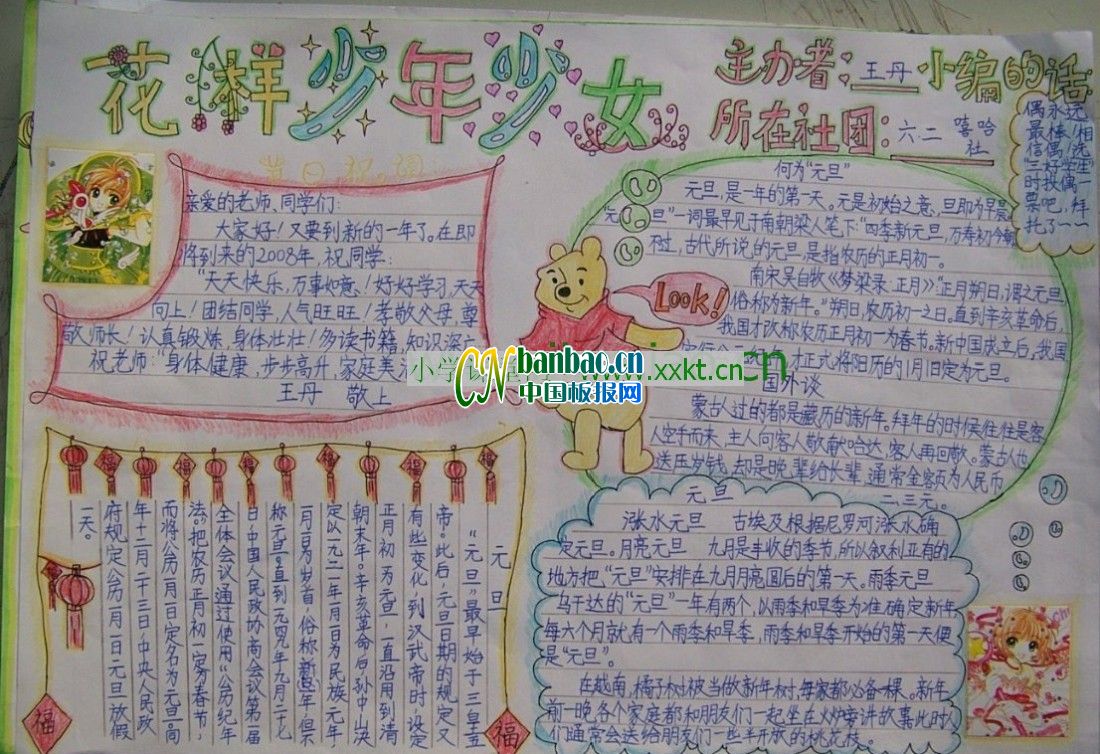 花样少年少女
主办者:王丹
所在社团:六二 嘻哈
社
小编的话
偶永远
最棒!相
信偶!选
"三好学生"
时投偶一
票吧,拜
托了~~
节日祝词
亲爱的老师、同学们:
大家好!又要到新的一年了。在即
将到来的2008年,祝同学:
"天天快乐,万事如意!好好学习,天天
向上!团结同学,人气旺旺!孝敬父母,尊
敬师长!认真锻炼,身体壮壮!多读书籍,知识深
祝老师:"身体健康,步步高升,家庭美
王丹 敬上
何为"元旦"
元旦,是一年的第一天。元是初始之意,旦即为早晨
"元旦"一词最早见于南朝梁人笔下:"四季新元旦,万寿初今朝
不过,古代所说的元旦,是指农历的正月初一。
南宋吴自牧《梦梁录·正月》"正月朔日,谓之元旦
俗称为新年。"朔日,农历初一之日。直到辛亥革命后,
我国才改称农历正月初一为春节。新中国成立后,我国
才正式将阳历的1月1日定为元旦。
国外谈
蒙古人过的都是藏历的新年。拜年的时候往往是客
人空手而来,主人向客人敬献哈达,客人再回敬。蒙古人也
送压岁钱,却是晚辈给长辈,通常金额页为人民币
二、三元。
Look!
小学课
www.xxkt.cn
CN banbao.cn
中国板报网
元旦
"元旦"最早始于三皇五
帝。此后,元旦日期的规定又
有些变化,到汉武帝时设定
正月初一为元旦,一直沿用到清
朝末年。辛亥革命后,孙中山决
定以一九一二年一月一日为民族元年,
一月一日为岁首,俗称新年,但不
称元旦。直到一九四九年九月二十七
日,中国人民政协商会议第一届
全体会议,通过使用"公历纪年
法。"把农历正月初一定为春节,
而将公历一月一日定名为元旦。
年十二月二十三日,中央人民政
府规定公历一月一日元旦放假
一天。
福
福
福
福
福
福
福
元旦
涨水元旦 古埃及根据尼罗河涨水确
定元旦。月亮元旦 九月是丰收的季节,所以叙利亚有的
地方把"元旦"安排在九月月亮圆后的第一天。雨季元旦
乌干达的"元旦"一年有两个,以雨季和旱季为准确定新年
每六个月就有一个雨季和旱季,雨季和旱季开始的第一天便
是"元旦"。
在越南,橘子树被当做新年树,每家都必备一棵。新年
前一晚各个家庭都和朋友们一起坐在火炉旁讲故事此时人
们通常会送给朋友们一些半开放的桃花枝。